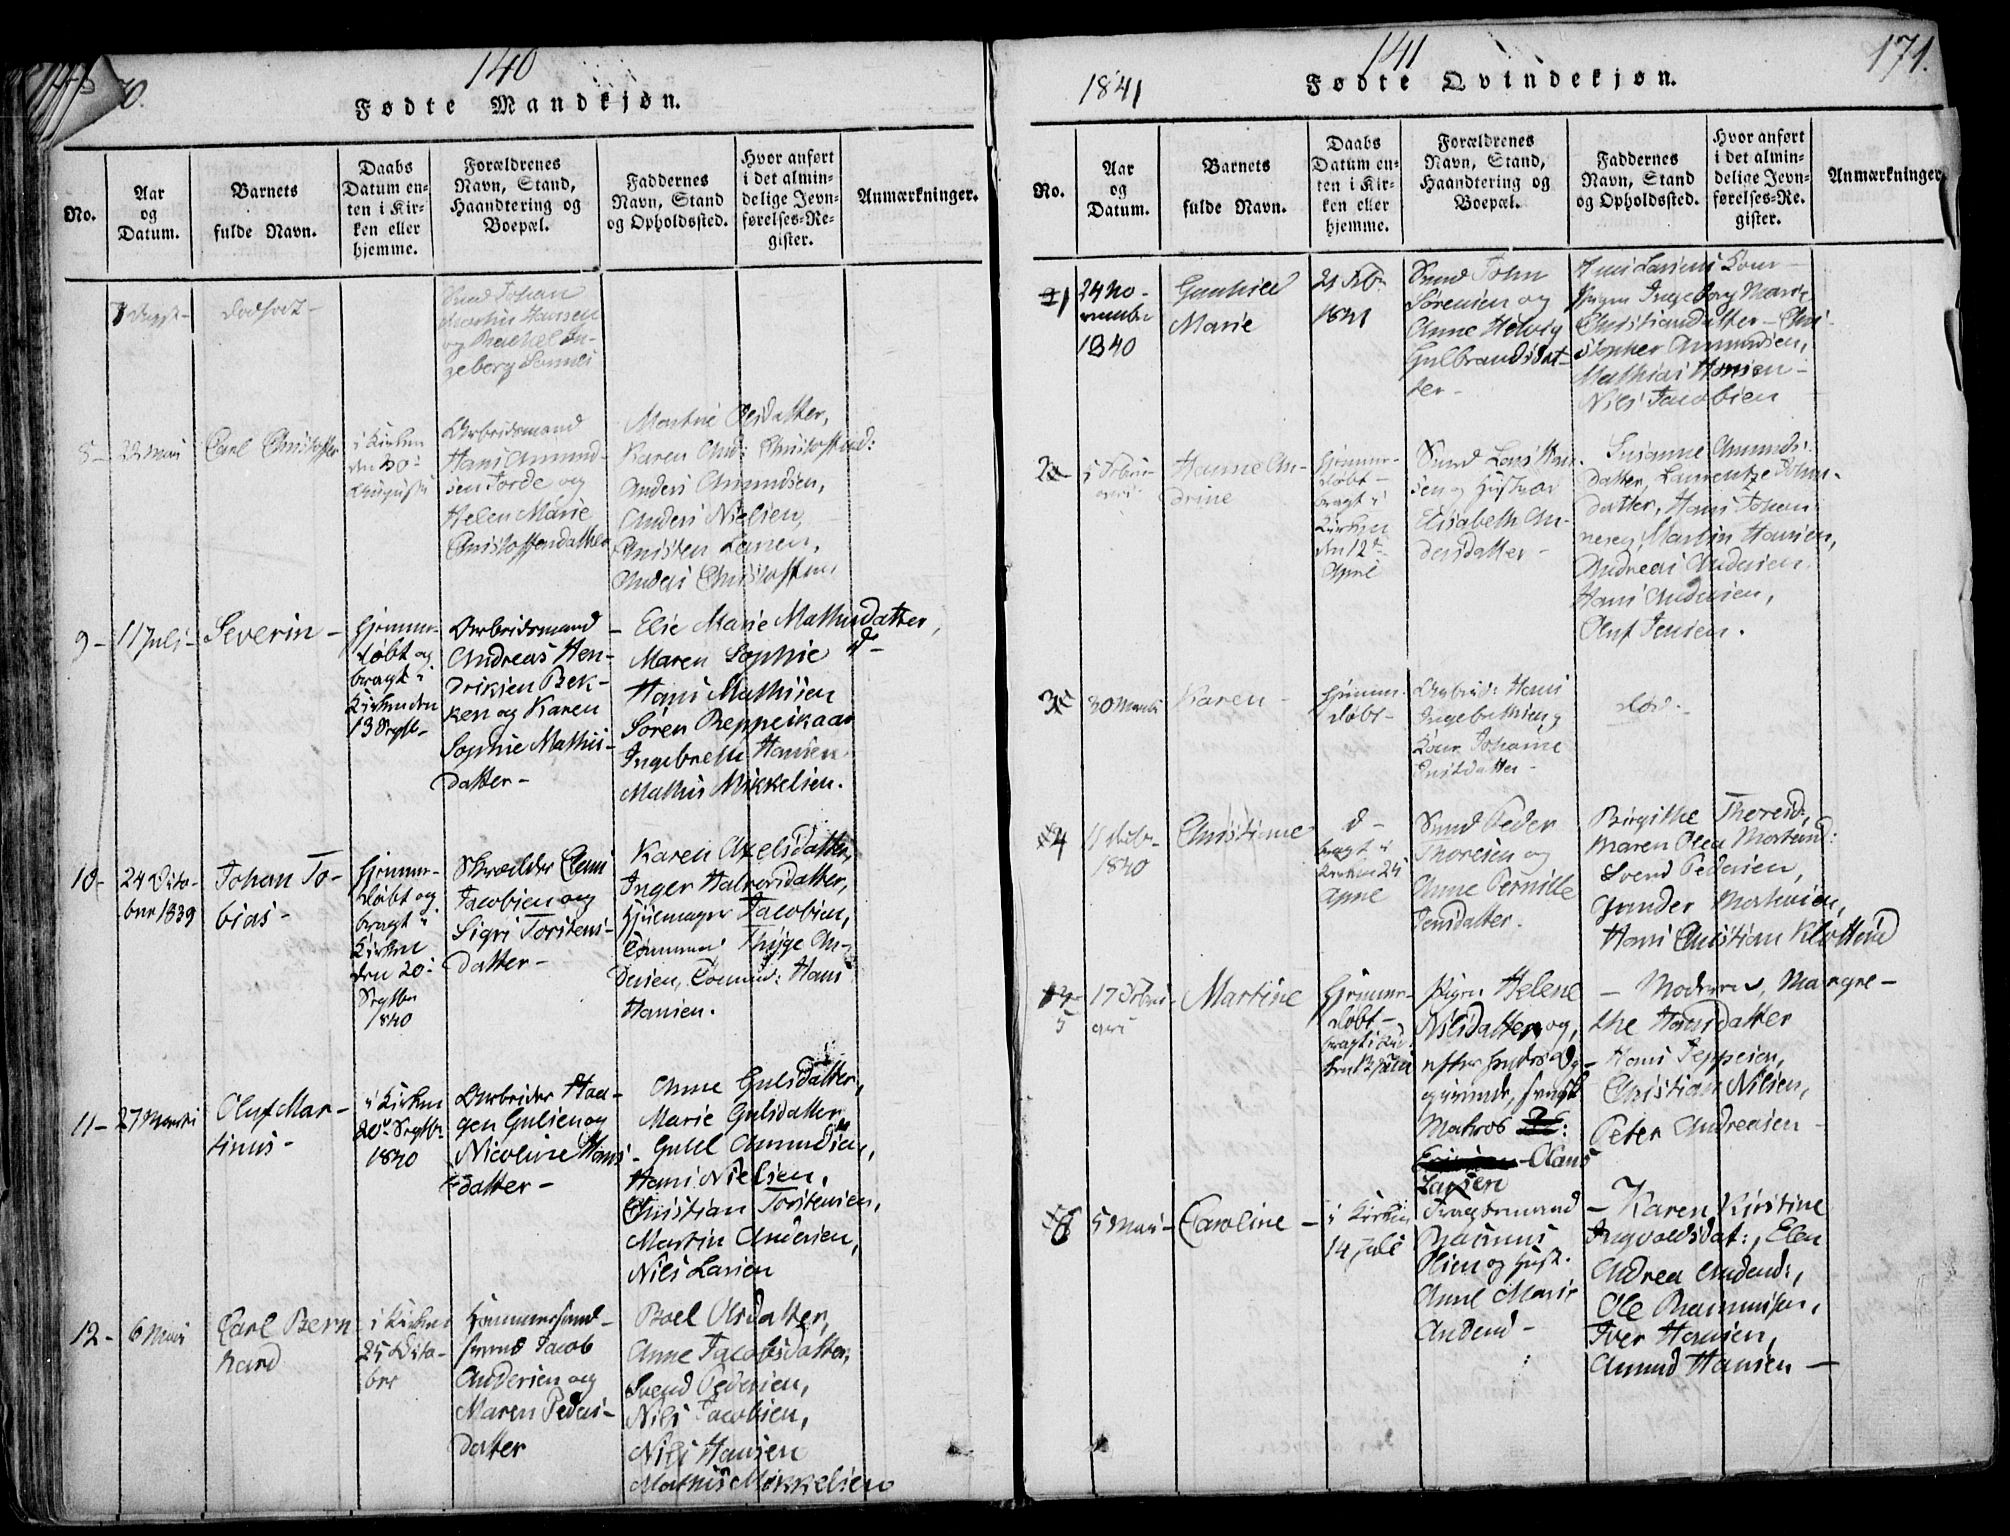 140
Fødte Mandkjøn.
No.
Aar
og
Datum.
Barnets
fulde Navn.
Daabs
Datum en-
ten i Kir-
ken eller
hjemme.
Forældrenes
Navn, Stand,
Haandtering og
Boepæl.
Faddernes
Navn, Stand
og Opholdssted.
Hvor anført
i det almin-
delige Jevn-
førelses-Re-
gister.
Anmærkninger.
dødfødt -
Johan
Martin Hansen
og Rachel In-
geborg
8 -
Carl Christoffer
i Kirken
den 30
Augusti
Arbeidsmand
Hans Amund-
sen Torde og
Helen Marie
Christoffersdatter
Martne Olsdatter,
Karen And: Christoffersd:
Anders Amundsen,
Anders Nielsen,
Christen Larsen,
Anders Christoffersen,
9 - 11 Juli -
Severin -
hjemme-
døbt og
bragt i
Kirken den
13 Septb -
Arbeidsmand
Andreas Hen-
driksen Bek-
ken og Karen
Sophie Mathis-
datter -
- Elie Marie Mathisdatter,
Maren Sophie d -
Hans Mathisen
Søren Reppeskaar
Ingebreth Hansen
Mathis Mikkelsen.
10 -
24 Octo-
ber 1839
Johan To-
bias -
hjemme-
døbt og
bragt i
Kirken
den 20
Septbr
1840
Skrædder
Jacobsen og
Sigri Torstens-
datter -
Karen Axelsdatter,
Inger Halvorsdatter,
Hjulmager Jacobsen,
Tømmer Thyge An-
dersen, Tømmd: Hans
Hansen.
11 - 27 Martii
Oluf Mar-
tinus -
i Kirken
20 Septbr
1840
Arbeider Haa-
gen Gulsen og
Nicoline Hans-
datter -
Anne Gulsdatter,
Marie Gulsdatter,
- Guld Amundsen,
Hans Nielsen,
Christian Torstensen,
Martin Andersen,
Nils Larsen
12 - 6 Mai
Carl Bern
hard
i Kirken
25 Octo-
ber
Hammersmed-
svend Jacob
Andersen og
Maren Peders-
datter
Boel Olsdatter,
Anne Jacobsdatter,
Svend Pedersen,
Nils Jacobsen,
Nils Hansen
Mathis Mikkelsen
1841
141
Fødte Qvindekjøn.
171.
No.
Aar
og
Datum.
Barnets
fulde Navn.
Daabs
Datum en-
ten i Kir-
ken eller
hjemme.
Forældrenes
Navn, Stand,
Haandtering og
Boepæl.
Faddernes
Navn, Stand
og Opholdssted.
Hvor anført
i det almin-
delige Jevn-
førelses-Re-
gister.
Anmærkninger
1
24 No-
vember
1840
Gunhild
Marie
21 Feb
1841
Smed John
Sørensen og
Anne Helvig
Gulbrandsdat-
ter -
Jens Larsens Kone
Pigen Ingeborg Marie
Christiansdatter - Chri-
stopher Amundsen,
Mathias Hansen -
Nils Jacobsen
2
5 Febru-
arii
Hanne An-
drine
hjemme-
døbt -
bragt i
Kirken
den 12te
April
Smed Lars Han-
sen og Hustrue
Elisabeth An-
dersdatter -
Susanne Amunds-
datter, Laurentze Johan-
datter, Hans Johan-
nesen, Martin Hansen,
Andreas Andersen,
Hans Andersen,
Oluf Jensen.
3
30 Martii
Karen -
hjemme-
døbt -
Arbeid: Hans
Ingebrethsen og
Kone Johanne
datter -
død -
4
1840
Christiane
d -
bragt i
Kirken 25
April
Smed Peder
Thoresen og
Anne Pernille
Jensdatter.
Birgithe Theresd.
Maren Olea Mortensd:
Svend Pedersen,
Gunder Mortensen,
Hans Christian
5
17 Febru-
arii
Martine
hjemme-
døbt -
bragt i Kir-
ken 12 Juli
Pigen Helene
Nilsdatter og,
efter hendes Op-
givende, svensk
Matros
- Olaus
Larsen
- Moderen, Margre-
the Hansdatter
Hans Jeppesen,
Christian Nilsen,
Peter Andreasen -
6
5 Mai -
Caroline -
i Kirken
14 Juli
Rasmus
Olsen og Hust:
Anne Marie
Andersd -
- Karen Kirstine
Ingvoldsdat:, Elen
Andrea Andersd:,
Ole Rasmussen,
Iver Hansen,
Amund Hansen -